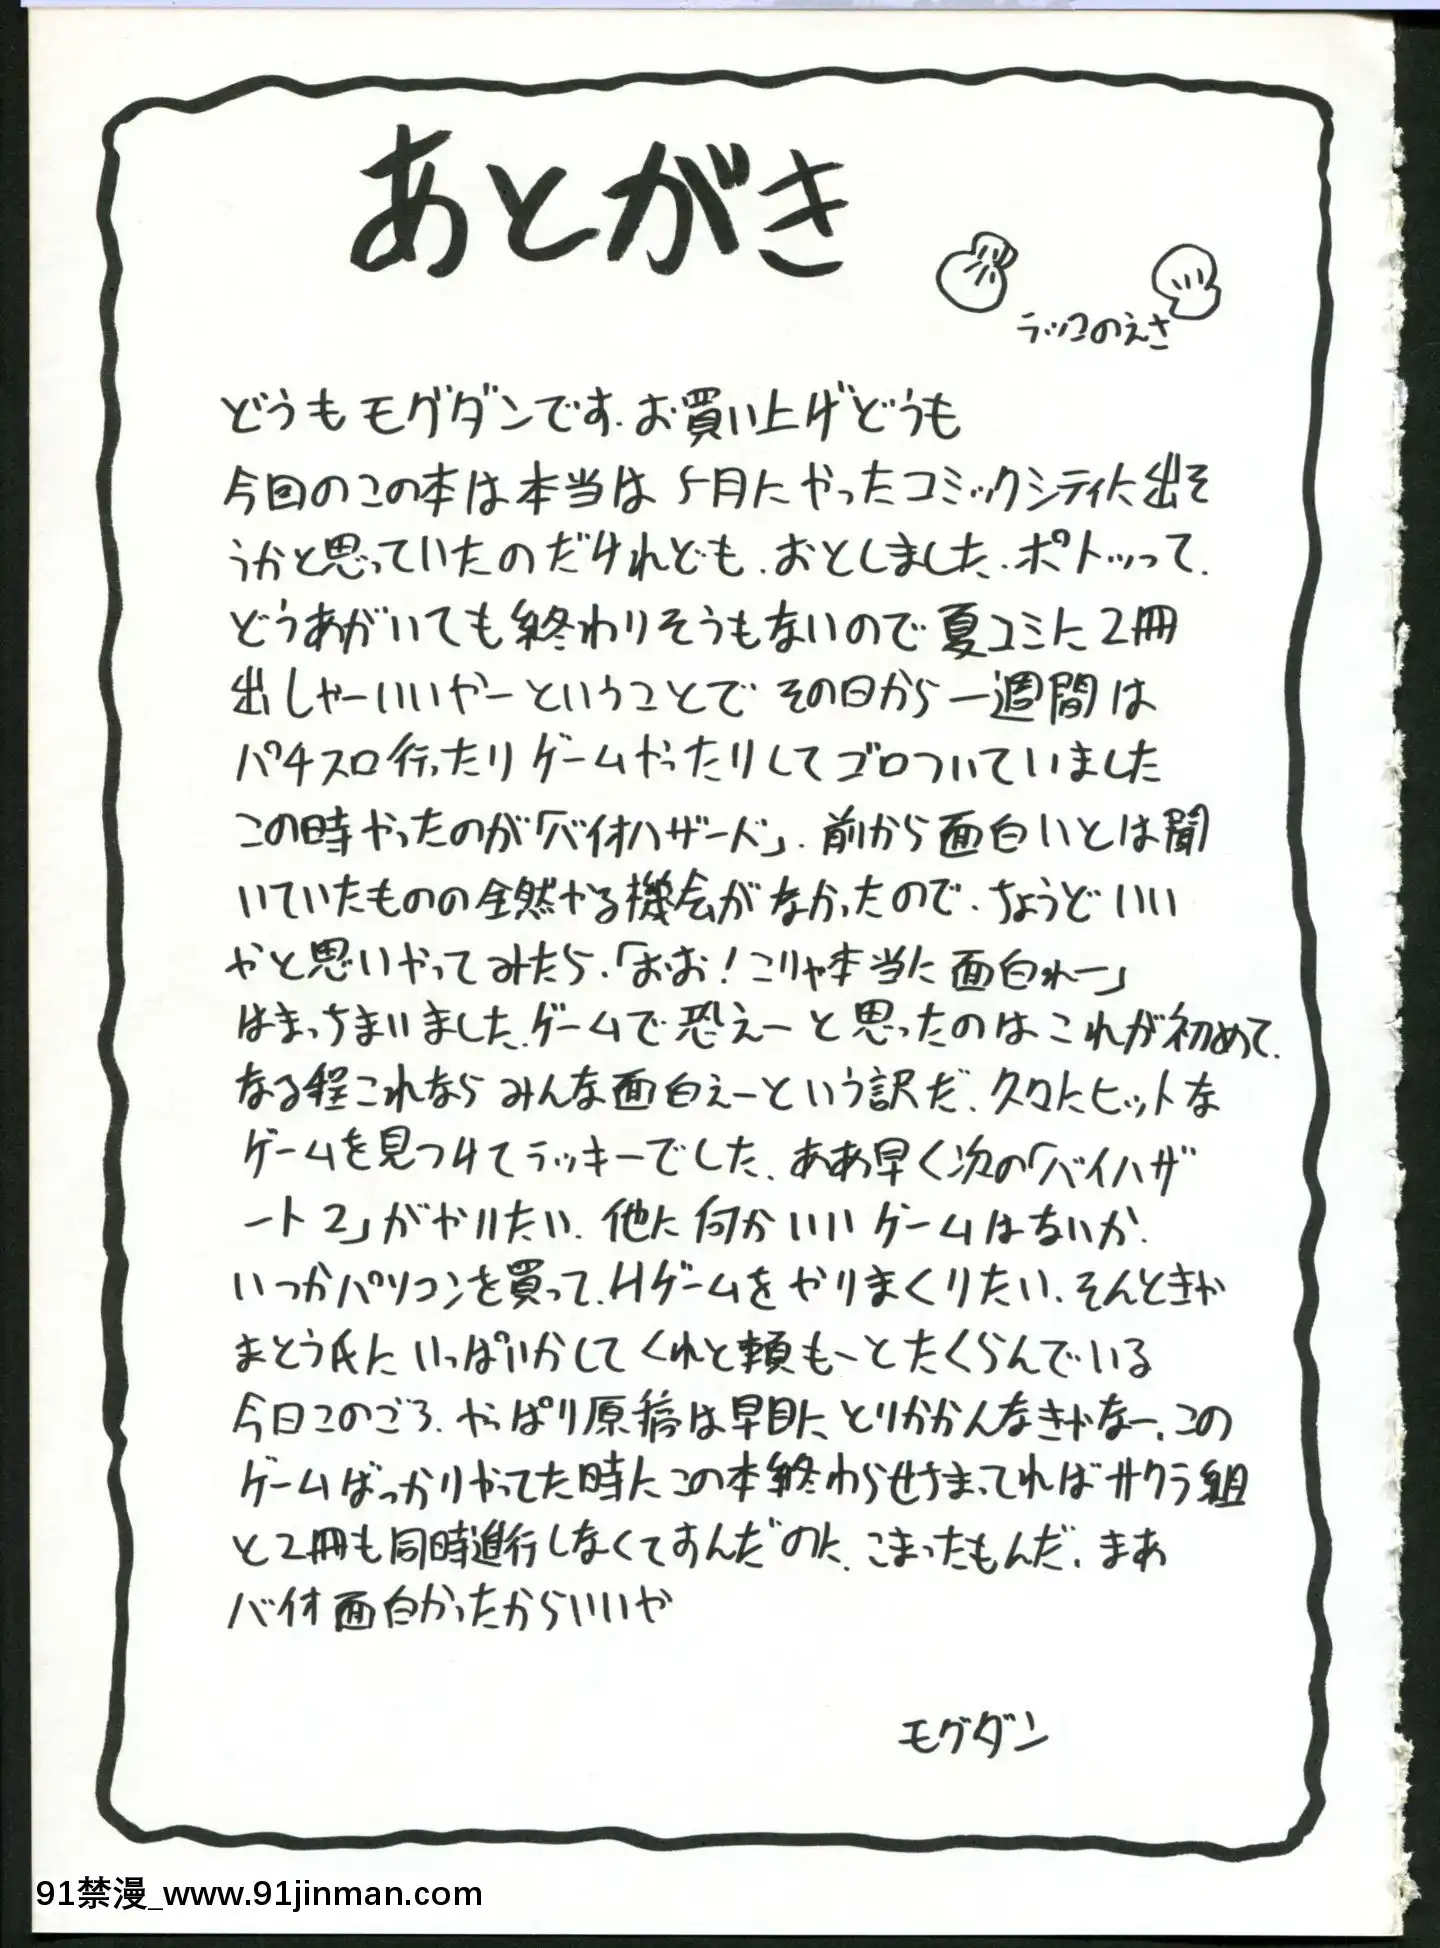 あとがき
ラッコのえさ
どうもモグダンです.お買い上げどうも
今回のこの本は本当は5月にやったコミックシティに出そ
うかと思っていたのだけれども.おとしました.ポトッって.
どうあがいても終わりそうもないので夏コミに2冊
出しゃーいいやーということで その日から一週間は
パチスロ行ったりゲームやったりしてゴロついていました
この時やったのが「バイオハザード」.前から面白いとは聞
いていたものの全然やる機会がなかったので.ちょうどいい
やと思いやってみたら.「おお!こりゃ本当に面白れー」
はまっちまいました.ゲームで恐えーと思ったのはこれが初めて.
なる程これならみんな面白えーという訳だ.久々にヒットな
ゲームを見つけてラッキーでした.ああ早く次の「バイハザ
ート2」がやりたい.他に何かいいゲームはないか.
いつかパソコンを買って.Hゲームをやりまくりたい.そんときゃ
まとう氏にいっぱいかしてくれと頼もーとたくらんでいる
今日このごろ.やっぱり原稿は早目にとりかかんなきゃなー.この
ゲームばっかりやってた時にこの本終わらせちまってればサクラ組
と2冊も同時進行しなくてすんだのに.こまったもんだ.まあ
バイオ面白かったからいいや
モグダン
91禁漫_www.91jinman.com